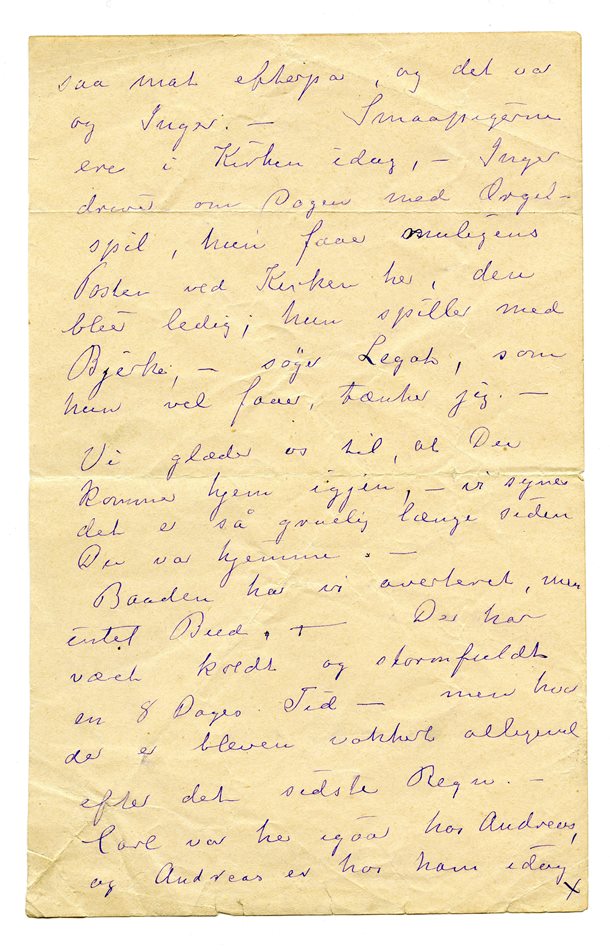 saa mat efterpa, og det var
og Inger. — Smaapigerne
ere i Kirken idag, — Inger
driver om Dagen med Orgel-
spil, hun faar muligens
Posten ved Kirken her, den
blev ledig; hun spiller med
Bjerke, — søger Legat, som
hun vel faaer, tænker jeg. —
Vi glæder os til, at Du
kommer hjem igjen, — vi synes
det er så gruelig længe siden
Du var hjemme. —
Baaden har vi averteret, men
intet Bud. — Der har
vært koldt og stormfuldt
en 8 Dages Tid — men hvor
der er bleven vakkert alligevel
efter det sidste Regn. —
Carl var her igaar hos Andreas,
og Andreas er hos ham idag x